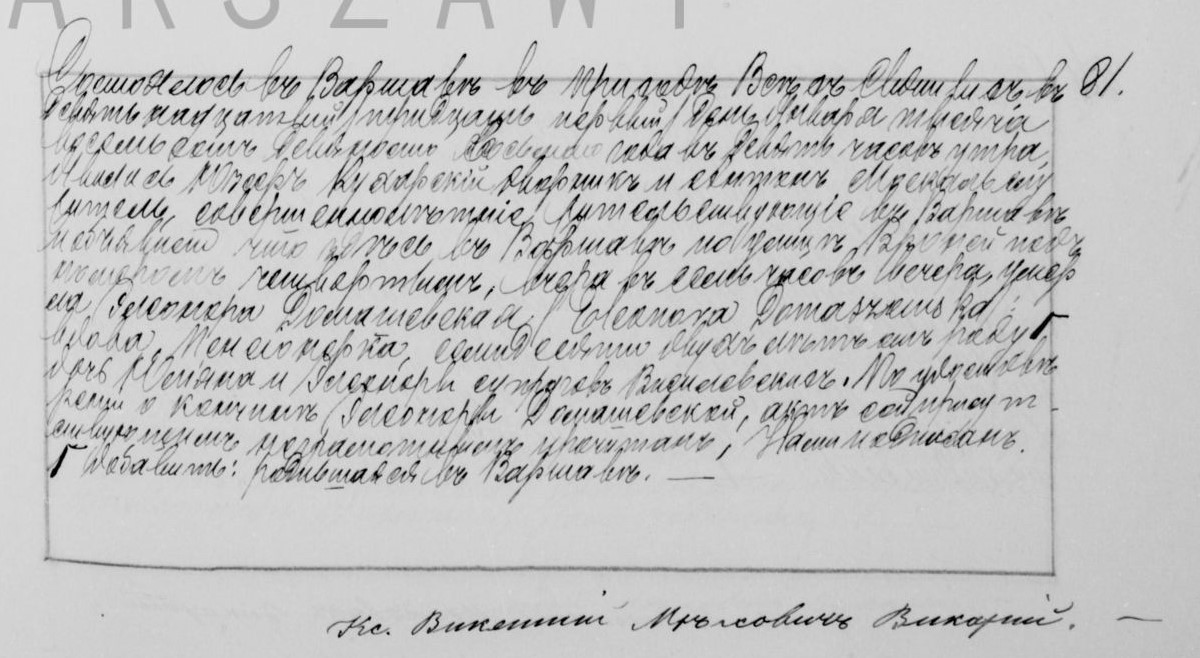 ARSZAWY
Состоялось въ Варшавѣ въ приходѣ Всѣхъ Святыхъ въ 81.
девятнадцатый /тридцать первый/ день Января тысяча
восемьсотъ девяносто года въ девять часовъ утра,
Явились Кухарскій дворникъ и
совершеннолѣтніе, жительствующіе въ Варшавѣ
и объявили что здѣсь въ Варшавѣ по улицѣ подъ
номеромъ четвертымъ, вчера въ семь часовъ вечера, умер
ла Элеонора Домашевская /Eleonora Domaszewska/
вдова, пенсіонерка, семидесяти двухъ лѣтъ отъ роду Г
дочь Юліяна и Элеоноры супруговъ По удостовѣ
реніи о кончинѣ Элеоноры Домашевской, актъ сей присут
ствующимъ неграмотнымъ прочитанъ, Нами подписанъ.
Г добавить: родившаяся въ Варшавѣ. —
Кс. Викентій Викарій. —